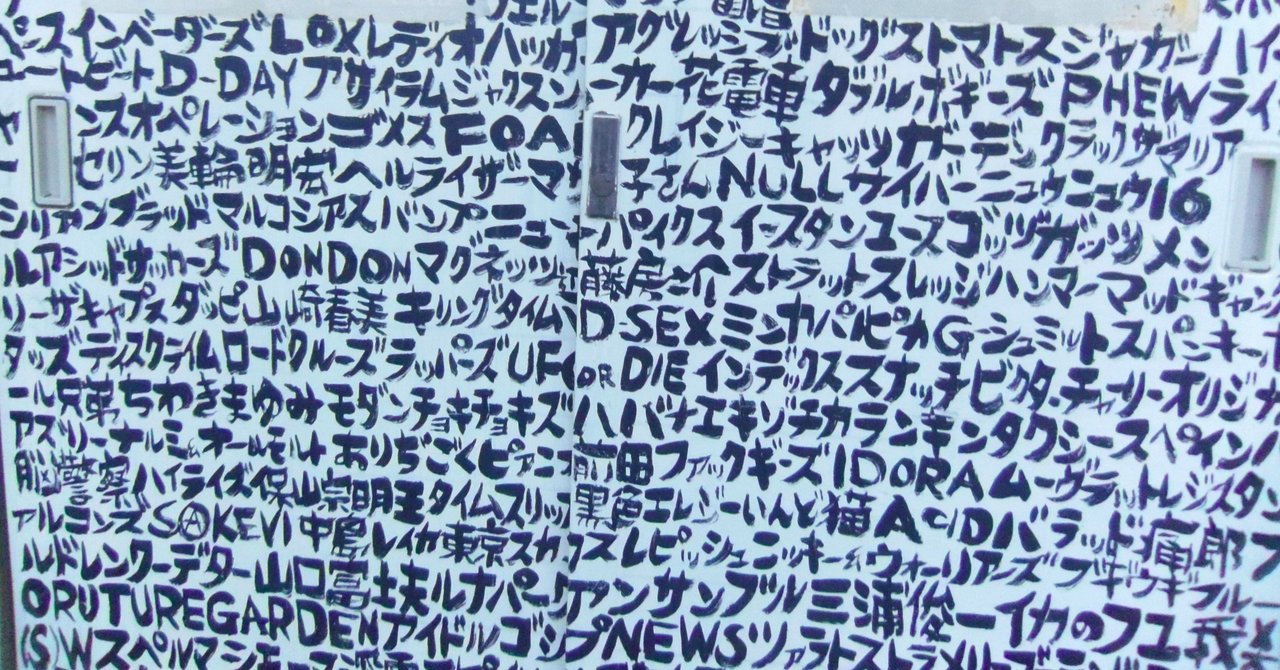 スインベーダーズLOXレディオハッカーアグレッシブドッグストマトスジャガーハイ
ートビートD-DAYアサイラムジャクスンーカー花電車ダブルボギーズPHEWライ
ンスオペレーションゴメスFOAクレイジーキャッツガーデンクラックザマリア
セリン美輪明宏ヘルライザーマ子さんNULLサイバーニュウニュウ16
シリアンブラッドマルコシアスバンプニューーパイクスイースタンユースゴッツガッツメン
ルアシッドサッカーズDONDONマグネッツ藤房之介ストラットスレッジハンマーマッドギャン
リーザキャプスダッピ山崎春美キリングタイムD-SEXミンカパルピカG-シュミットスパンキー
タッズディスクライムロードクルーズラッパーズUFO OR DIEインデックススナッチビクターチャーリーオリジナ
ール兄弟ちわきまゆみモダンチョキチョキズハバナエキゾチカランキンタクシースペイン
アズリーナルミ&オールモルトありぢごくピアニ前田ファックギーズIDORAムーヴラットレジスタン
脳警察ハイライズ保山宗明玉タイムスリッ黒色エレジーいんど猫ACIDバラッド痛郎
アルミンズSAKEVI中島レイカ東京スカズレピッシュニッキー&ウォーリアーズブギウギブルー
ルドレンクーデター山口富士夫ルナパークアンサンブル三浦俊一イカのフユ
ORUTUREGARDENアイドルゴシップNEWSツァラトストラ
(S)Wスペルマ